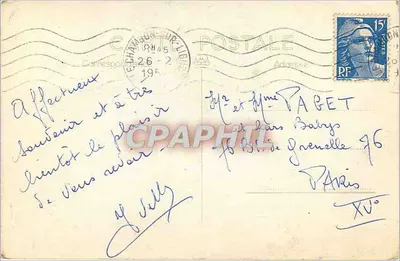 CARTE POSTALE
Correspondance Adresse
LE CHAMBON-SUR-LIGNON
26-2
195
15F
RF
Affectueux
souvenir et à très
bientôt le plaisir
de vous revoir -
Mr et Mme PAGET
et leurs Babys
76 Bd. de Grenelle 76
PARIS
XVo
CPAPHIL